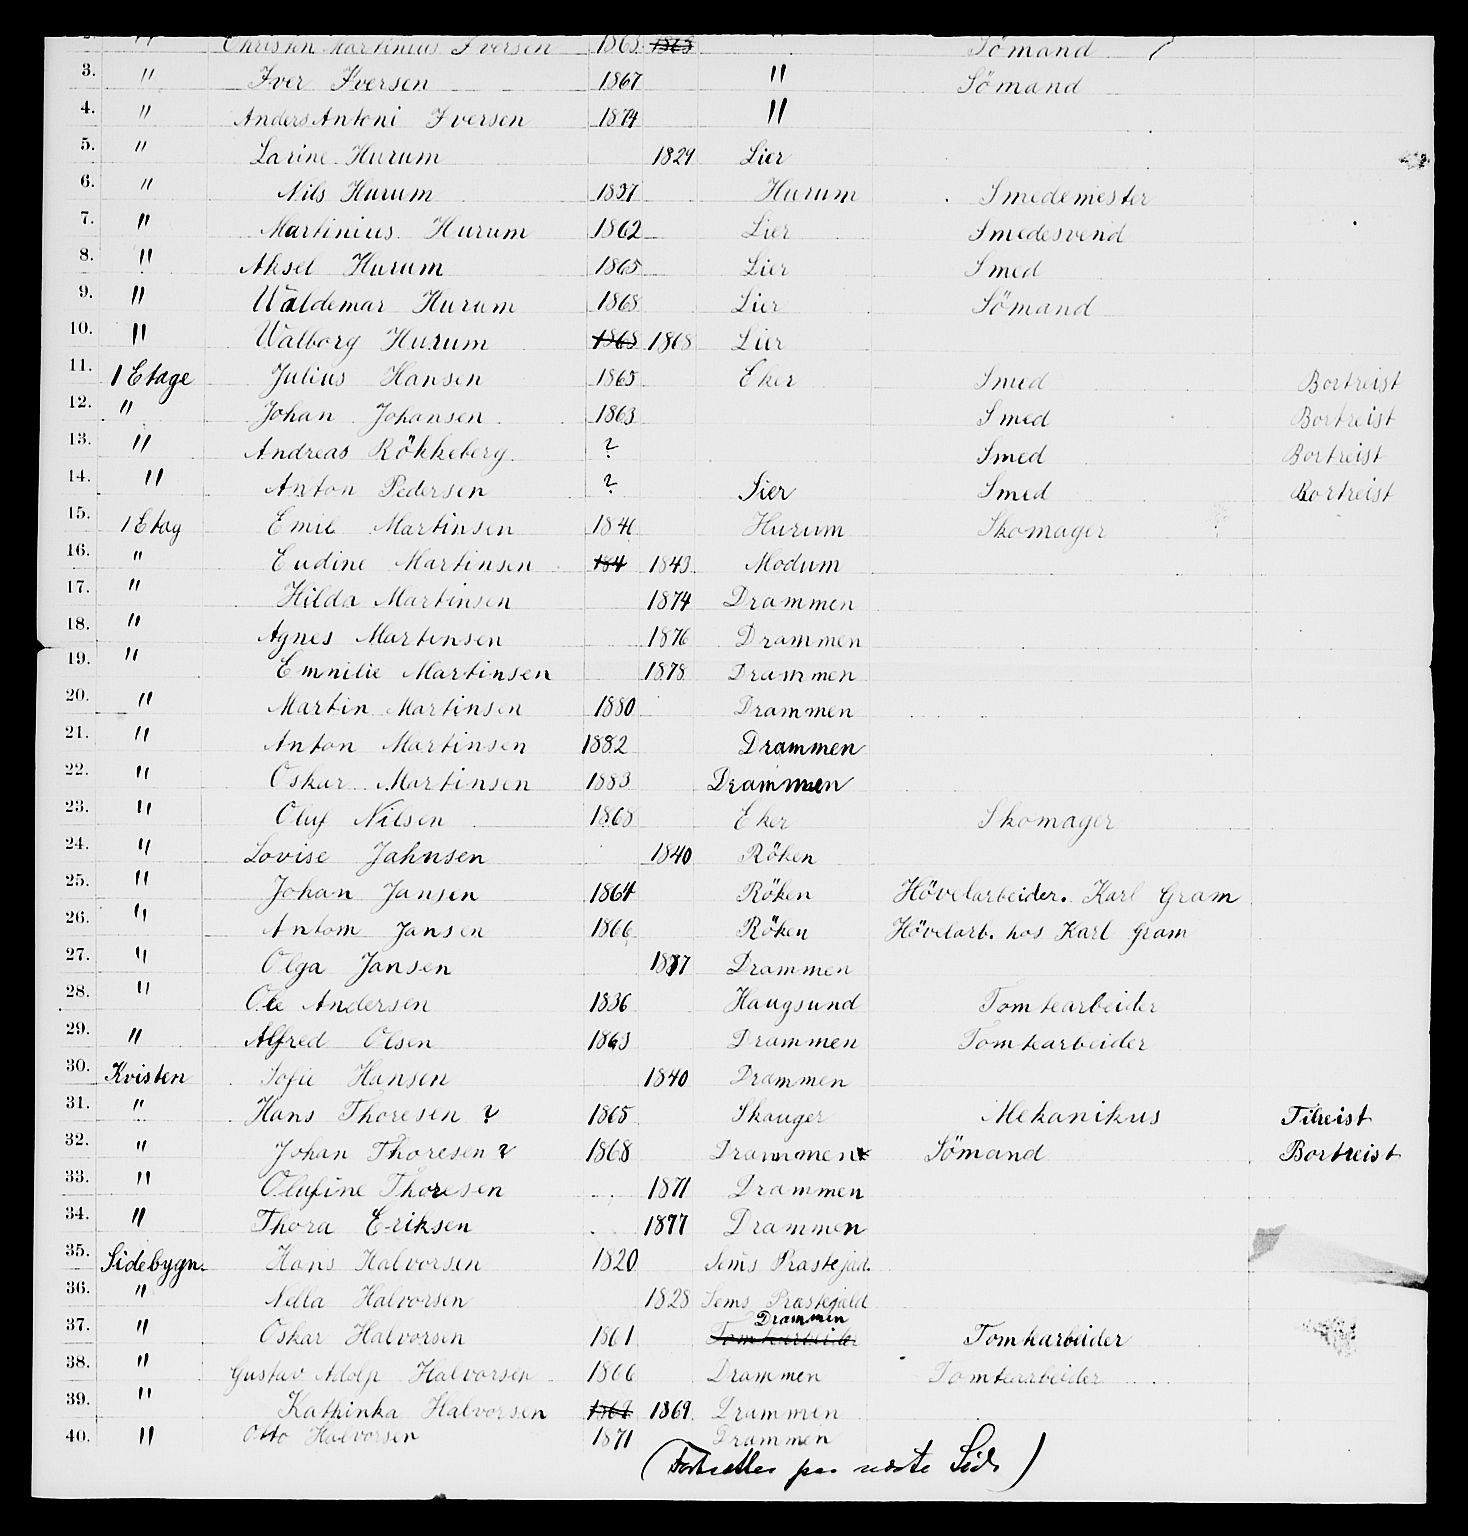 2. " Christen Martinius Iversen 1863 1863 " Sömand
3. " Iver Iversen 1867 " Sömand
4. " Anders Antoni Iversen 1874 "
5. " Larine Hurum 1829 Lier
6. " Nils Hurum 1837 Hurum Smedemester
7. " Martinius Hurum 1862 Lier Smedesvend
8. " Aksel Hurum 1865 Lier Smed
9. " Waldemar Hurum 1868 Lier Sömand
10. " Walborg Hurum 1868 1868 Lier
11. 1 Etage Julius Hansen 1865 Eker Smed Bortreist
12. " Johan Johansen 1863 Smed Bortreist
13. " Andreas Rökkeberg ? Smed Bortreist
14. " Anton Pedersen ? Lier Smed Bortreist
15. 1 Etag Emil Martinsen 1841 Hurum Skomager
16. " Eudine Martinsen 184 1843 Modum
17. " Hilda Martinsen 1874 Drammen
18. " Agnes Martinsen 1876 Drammen
19. " Emnilie Martinsen 1878 Drammen
20. " Martin Martinsen 1880 Drammen
21. " Anton Martinsen 1882 Drammen
22. " Oskar Martinsen 1883 Drammen
23. " Oluf Nilsen 1868 Eker Skomager
24. " Lovise Jahnsen 1840 Röken
25. " Johan Jansen 1864 Röken Hövelarbeider. Karl Gram
26. " Antom Jansen 1866 Röken Hövelarb. hos Karl Gram
27. " Olga Jansen 1877 Drammen
28. " Ole Andersen 1836 Haugsund Tomtearbeider
29. " Alfred Olsen 1863 Drammen Tomtearbeider
30. Kvisten Sofie Hansen 1840 Drammen
31. " Hans Thoresen ? 1865 Skauger Mekanikus Tilreist
32. " Johan Thoresen ? 1868 Drammen Sömand Bortreist
33. " Olufine Thoresen 1871 Drammen
34. " Thora Eriksen 1877 Drammen
35. Sidebygn. Hans Halvorsen 1820 Sems Præstejæd.
36. " Nella Halvorsen 1828 Sems Præstejæld
37. " Oskar Halvorsen 1861 Tomtearbeide Drammen Tomtearbeider
38. " Gustav Adolp Halvorsen 1866 Drammen Tomtearbeider
39. " Kathinka Halvorsen 1869 1869 Drammen
40. " Otto Halvorsen 1871 Drammen
(Fortsættes paa næste Side)